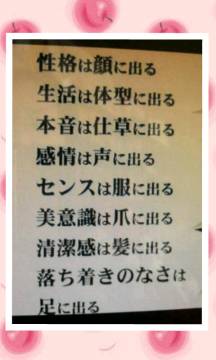 性格は顔に出る
生活は体型に出る
本音は仕草に出る
感情は声に出る
センスは服に出る
美意識は爪に出る
清潔感は髪に出る
落ち着きのなさは
足に出る